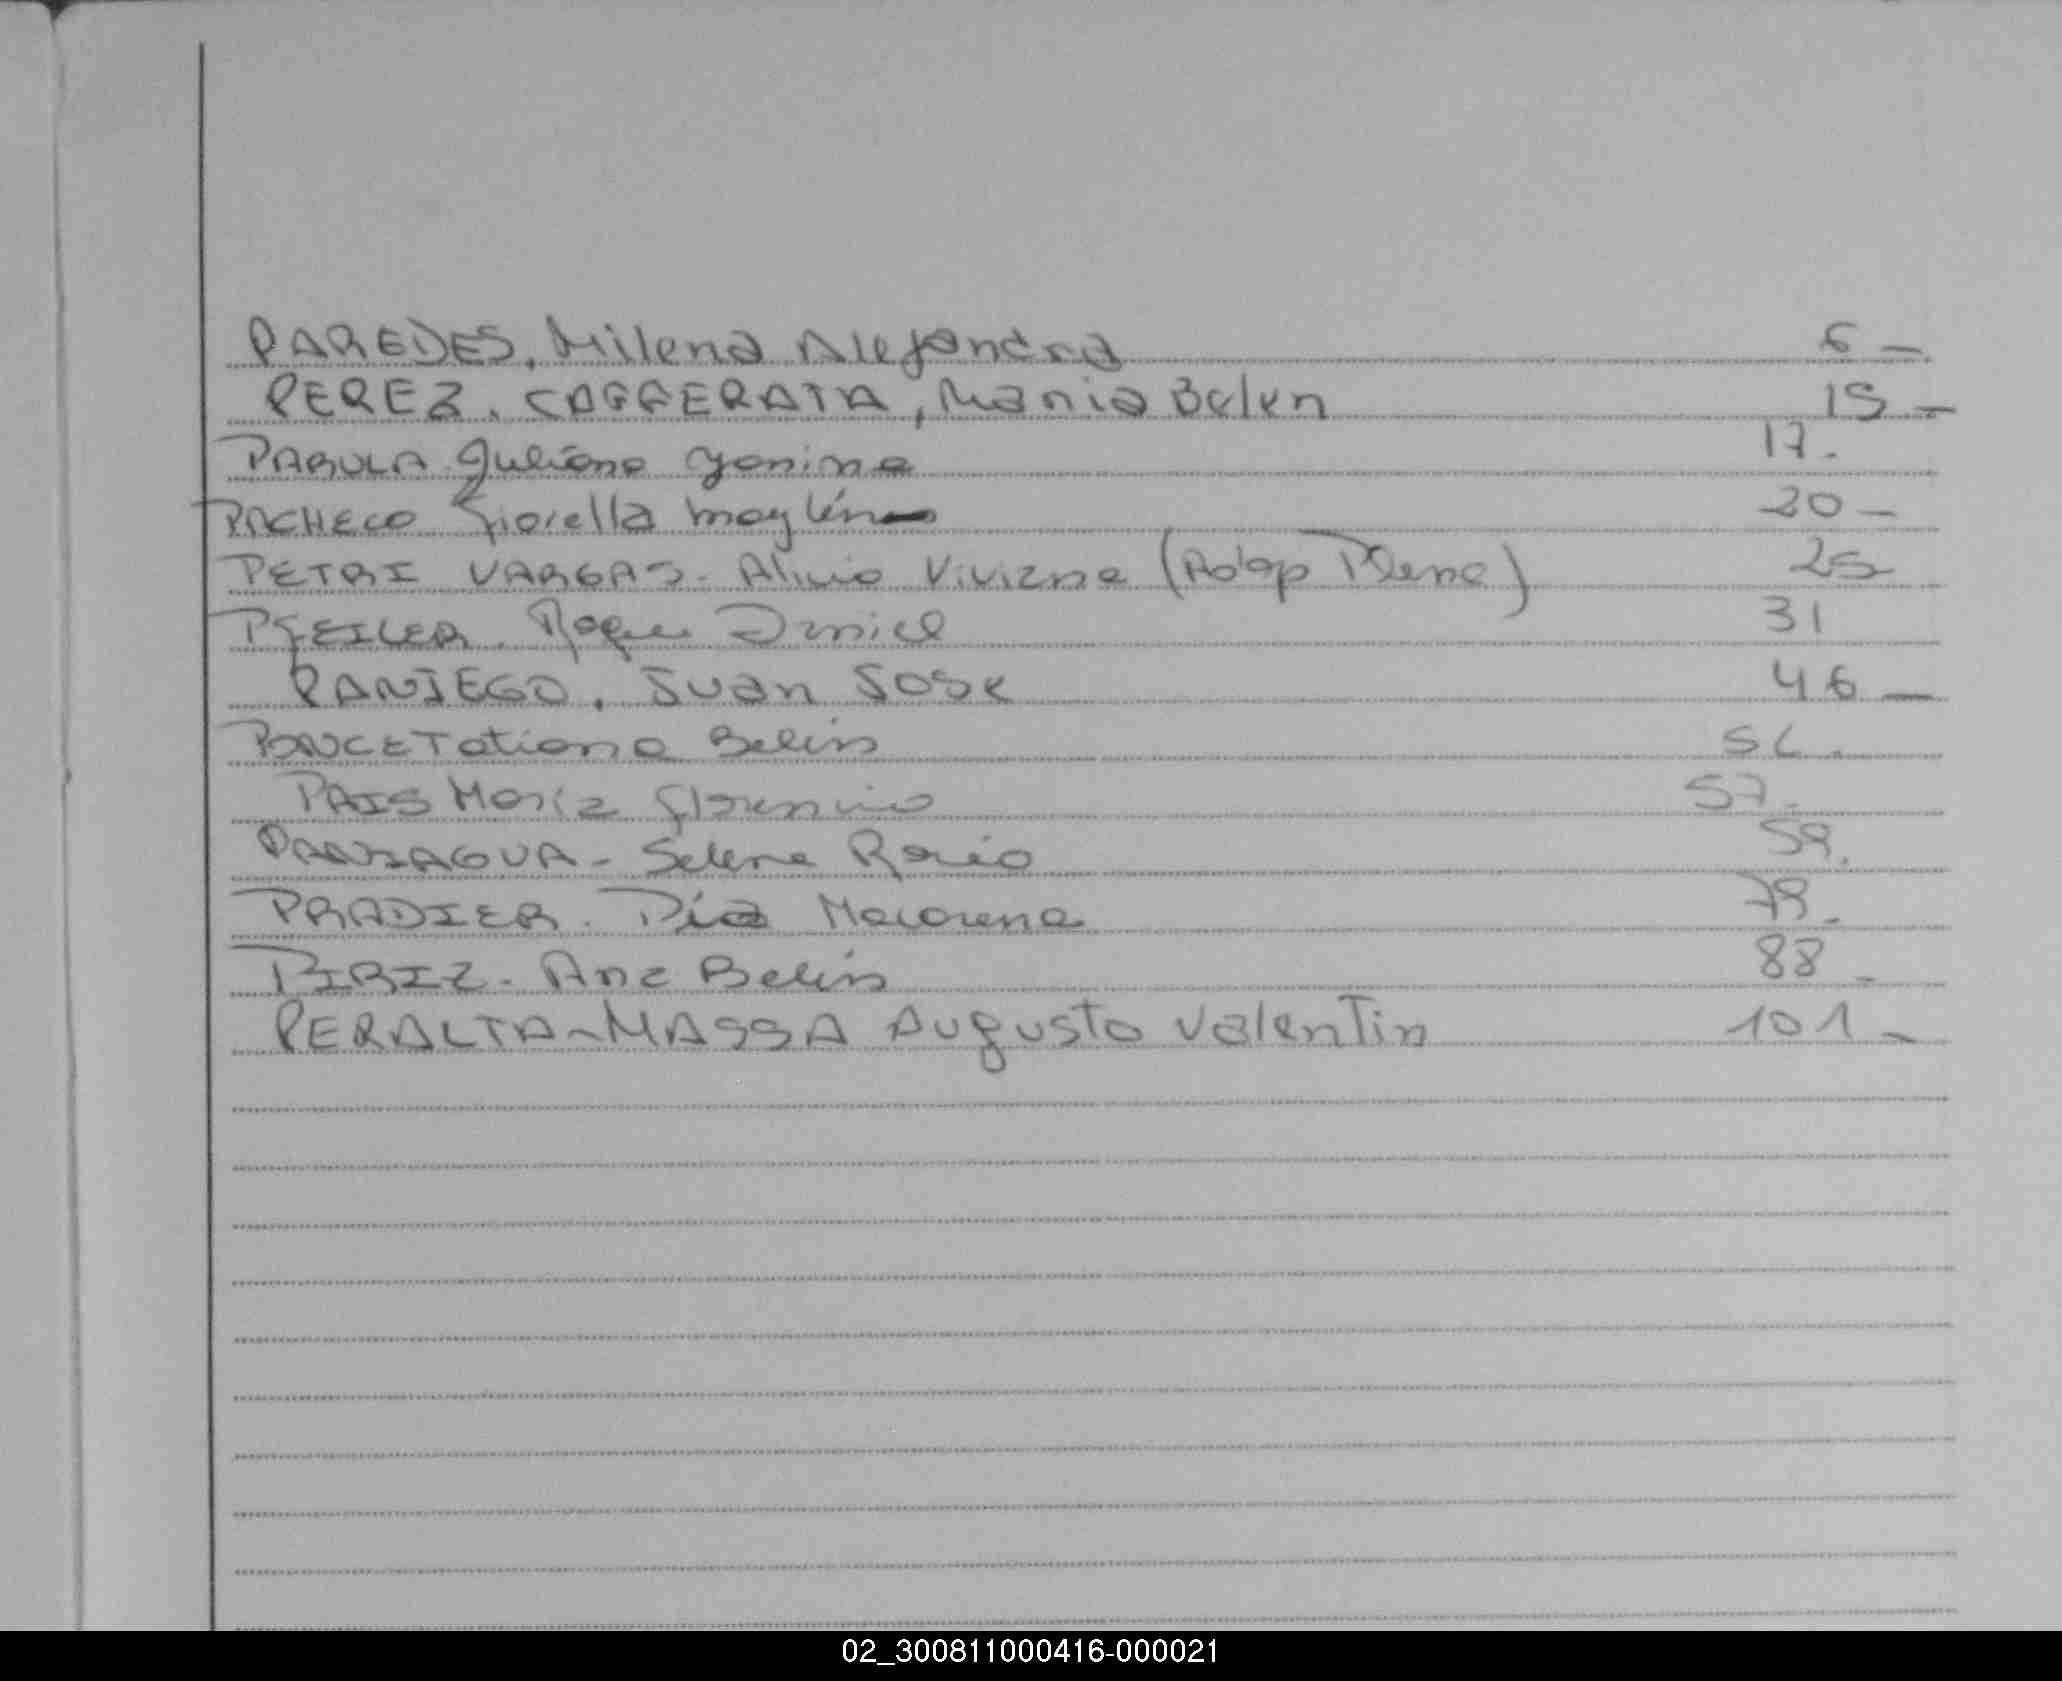 PAREDES, Milena Alejandra 6 -
PEREZ. CAFFERATA, Maria Belen 15 -
PABULA Juliana Yanina 17.
PACHECO Fiorella maylén 20 -
PETRI VARGAS. Alicia Viviana (Adop Plena) 25
PFEILER. Roque Daniel 31
PANIEGO. Juan Jose 46 -
PONCE Tatiana Belén
PAIS María Florencia 57.
PANIAGUA - Selene Rocío 59.
PRADIER. Pía Macarena 79.
PIRIZ. Ana Belén 88 -
PERALTA-MASSA Augusto Valentin 101 -
02_300811000416-000021